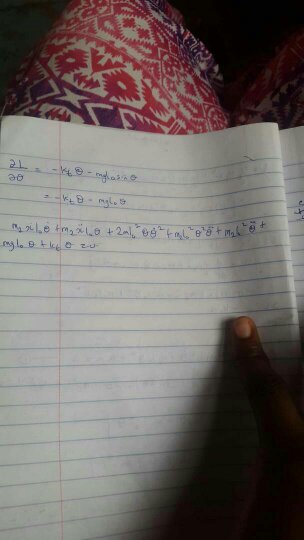 ∂L/∂θ = -k_t θ - mgl₀ sin θ
= -k_t θ - mgl₀ θ
m₂ẋl₀θ̇ + m₂ẍl₀θ + 2ml₀²θθ̇² + m₂l₀²θ²θ̈ + m₂l₀²θ̈ +
mgl₀ θ + k_t θ = 0